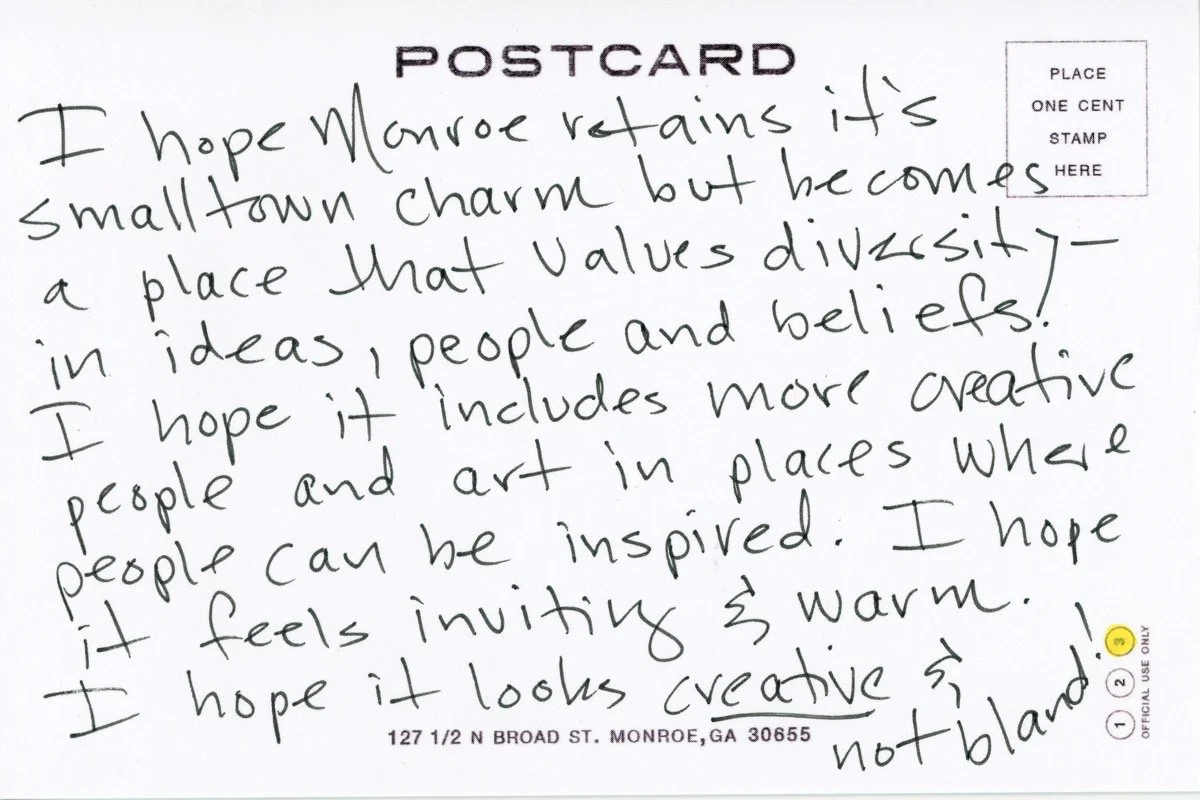 POSTCARD
PLACE
ONE CENT
STAMP
HERE
I hope Monroe retains it's
smalltown charm but becomes
a place that values diversity—
in ideas, people and beliefs!
I hope it includes more creative
people and art in places where
people can be inspired. I hope
it feels inviting & warm.
I hope it looks creative &
not bland!
127 1/2 N BROAD ST. MONROE,GA 30655
1 2 3
OFFICIAL USE ONLY